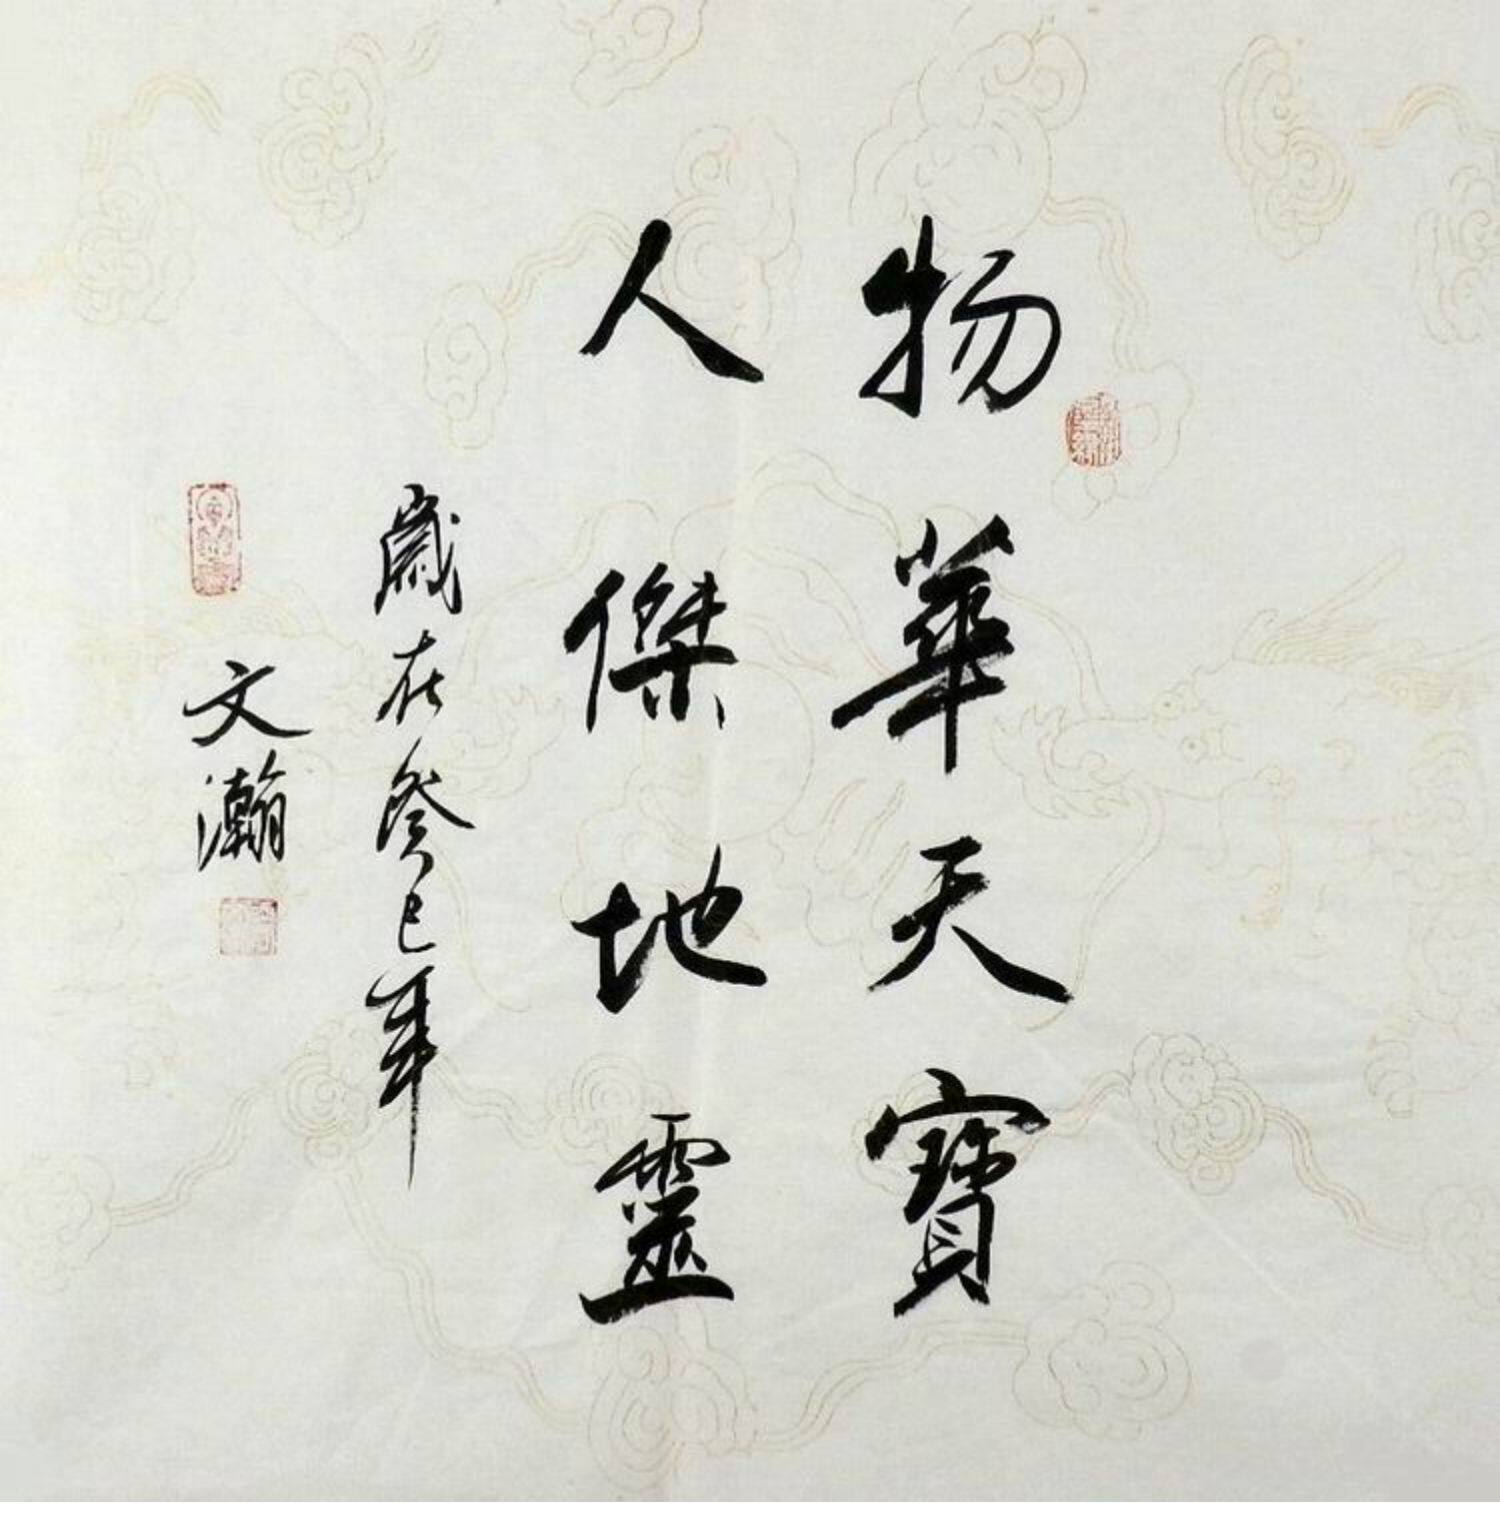 物華天寶
人傑地靈
歲在癸巳年
文瀚